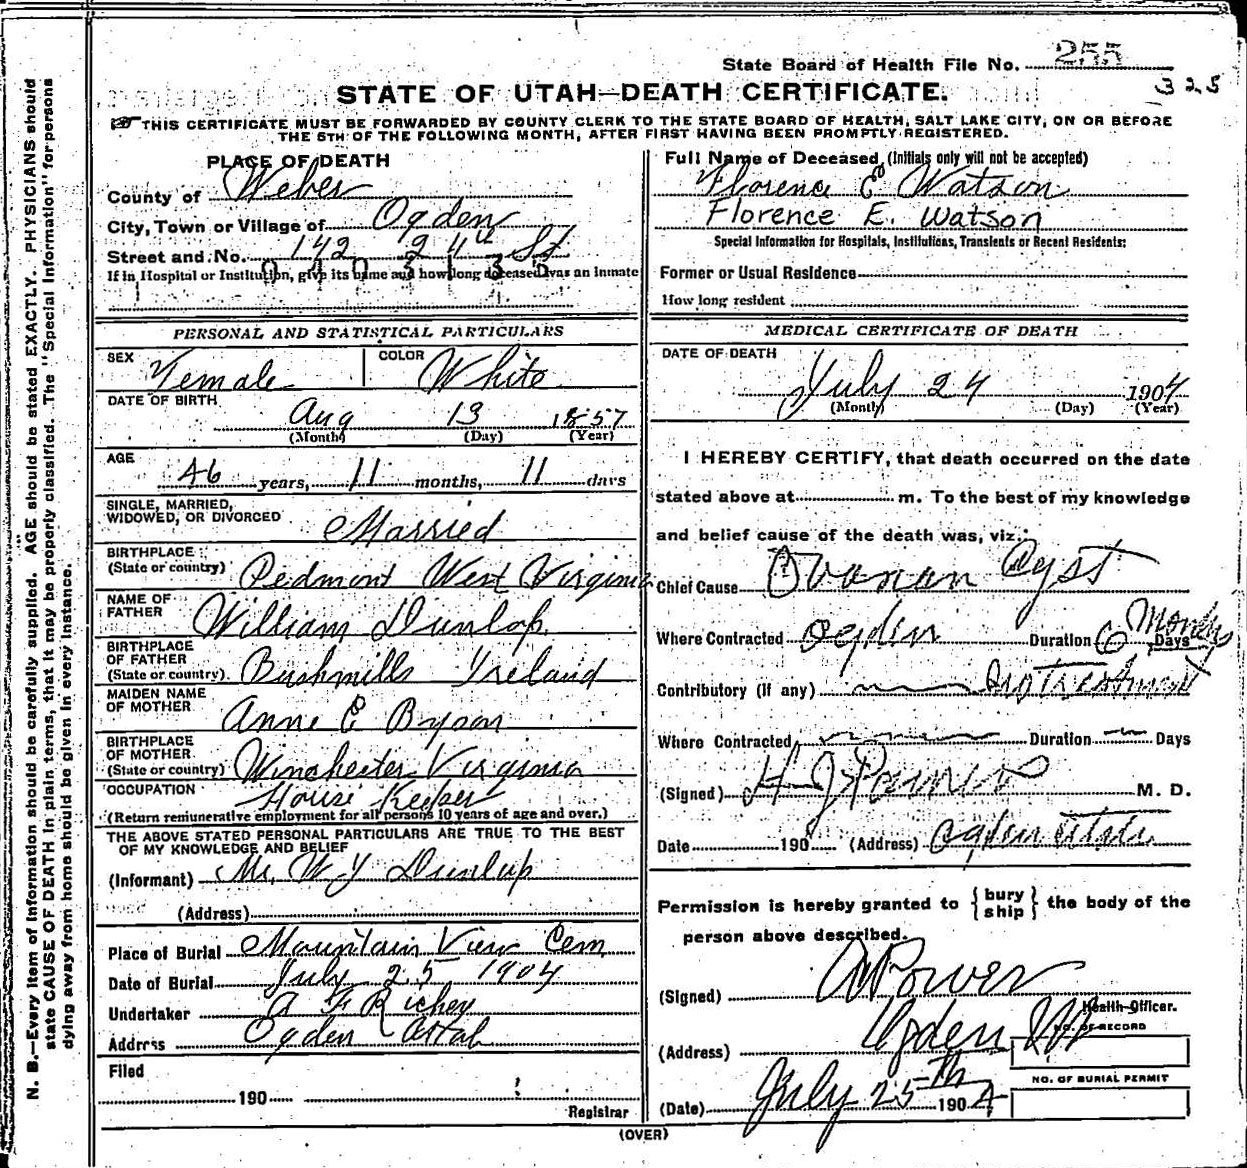 State Board of Health File No. 255
325
STATE OF UTAH—DEATH CERTIFICATE.
THIS CERTIFICATE MUST BE FORWARDED BY COUNTY CLERK TO THE STATE BOARD OF HEALTH, SALT LAKE CITY, ON OR BEFORE
THE 5TH OF THE FOLLOWING MONTH, AFTER FIRST HAVING BEEN PROMPTLY REGISTERED.
PLACE OF DEATH
County of Weber
City, Town or Village of Ogden
Street and No. 142 24th St
If in Hospital or Institution, give its name and how long deceased was an inmate
0403135
PERSONAL AND STATISTICAL PARTICULARS
SEX Female COLOR White
DATE OF BIRTH
Aug 13 1857
(Month) (Day) (Year)
AGE
46 years, 11 months, 11 days
SINGLE, MARRIED,
WIDOWED, OR DIVORCED Married
BIRTHPLACE
(State or country) Pedmont West Virginia
NAME OF
FATHER William Dunlap
BIRTHPLACE
OF FATHER
(State or country) Bushmills Ireland
MAIDEN NAME
OF MOTHER Anne E Bryson
BIRTHPLACE
OF MOTHER
(State or country) Winchester Virginia
OCCUPATION House Keeper
(Return remunerative employment for all persons 10 years of age and over.)
THE ABOVE STATED PERSONAL PARTICULARS ARE TRUE TO THE BEST
OF MY KNOWLEDGE AND BELIEF
(Informant) Mr. W J Dunlap
(Address)
Place of Burial Mountain View Cem
Date of Burial July 25 1904
Undertaker A F Richey
Address Ogden Utah
Filed
190
Registrar
Full Name of Deceased (Initials only will not be accepted)
Florence E Watson
Florence E. Watson
Special Information for Hospitals, Institutions, Transients or Recent Residents:
Former or Usual Residence
How long resident
MEDICAL CERTIFICATE OF DEATH
DATE OF DEATH
July 24 1904
(Month) (Day) (Year)
I HEREBY CERTIFY, that death occurred on the date
stated above at m. To the best of my knowledge
and belief cause of the death was, viz.:
Chief Cause Ovarian Cyst
Where Contracted Ogden Duration 6 Months Days
Contributory (If any) No Treatment
Where Contracted Duration Days
(Signed) H J Powers M. D.
Date 190 (Address) Ogden Utah
Permission is hereby granted to {bury
ship} the body of the
person above described.
(Signed) A Power
Health Officer.
NO. OF RECORD
(Address) Ogden Ut
NO. OF BURIAL PERMIT
(Date) July 25th 1904
(OVER)
N. B.—Every item of information should be carefully supplied. AGE should be stated EXACTLY. PHYSICIANS should
state CAUSE OF DEATH in plain terms, that it may be properly classified. The "Special Information" for persons
dying away from home should be given in every instance.